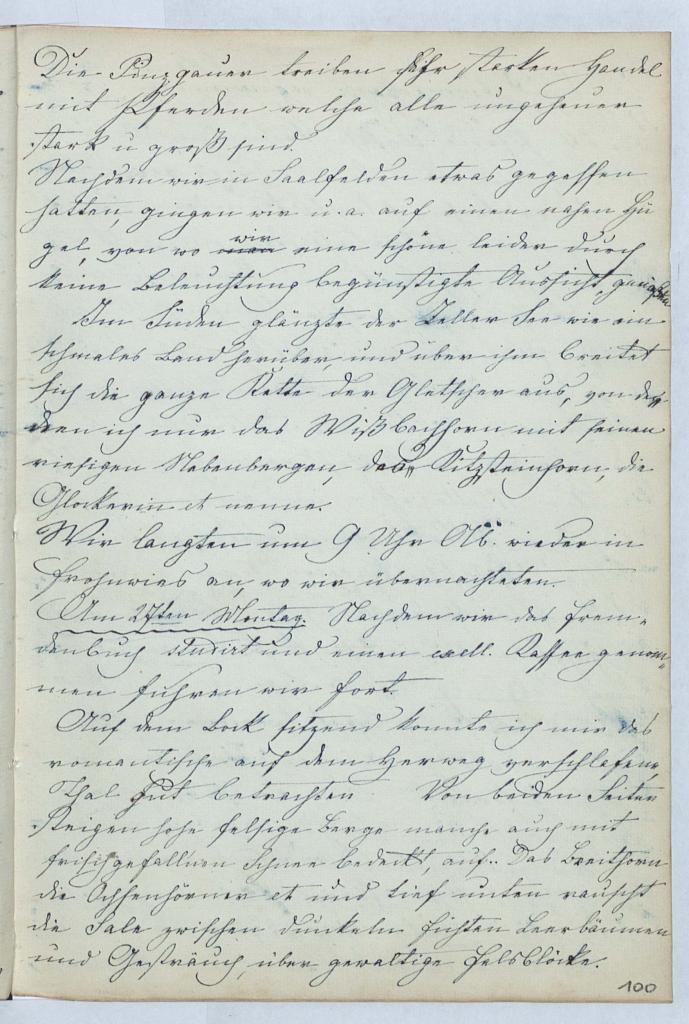 Die Pinzgauer treiben sehr starken Handel
mit Pferden welche alle ungeheuer
stark u groß sind.
Nachdem wir in Saalfelden etwas gegessen
hatten, gingen wir u. a. auf einen nahen Hü
gel, von wo wir eine schöne leider durch
keine Beleuchtung begünstigte Aussicht genoßen
Im Süden glänzte der Zeller See wie ein
schmales Band herüber, und über ihm breitet
sich die ganze Kette der Gletscher aus, von de
nen ich nur das Wißbachhorn mit seinen
riesigen Nebenbergen, das Kitzsteinhorn, die
Glockerin et nenne.
Wir langten um 9 Uhr Ab. wieder in
Frohnwies an, wo wir übernachteten.
Am 27ten Montag. Nachdem wir das Frem-
denbuch studirt und einen exell. Kaffee genom-
men fuhren wir fort.
Auf dem Bock sitzend konnte ich mir das
romantische auf dem Herweg verschlafene
Thal gut betrachten. Von beiden Seiten
steigen hohe felsige Berge manche auch mit
frischgefallnen Schnee bedeckt, auf.. Das Breithorn
die Ochsenhörner et und tief unten rauscht
die Sale zwischen dunkeln Fichten Beerbäumen
und Gesträuch, über gewaltige Felsblöcke.
100